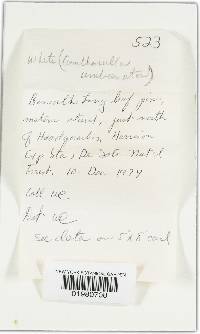 523
White (Cantharellus
umbonatus)
Beneath long leaf pine,
mature stand, just north
of Headquarters, Harrison
Exp Sta, De Soto Nat'l
Forest. 10 Dec 1974
Coll WE
Det WE
see data on 5"x8" card
NEW YORK BOTANICAL GARDEN
01980700